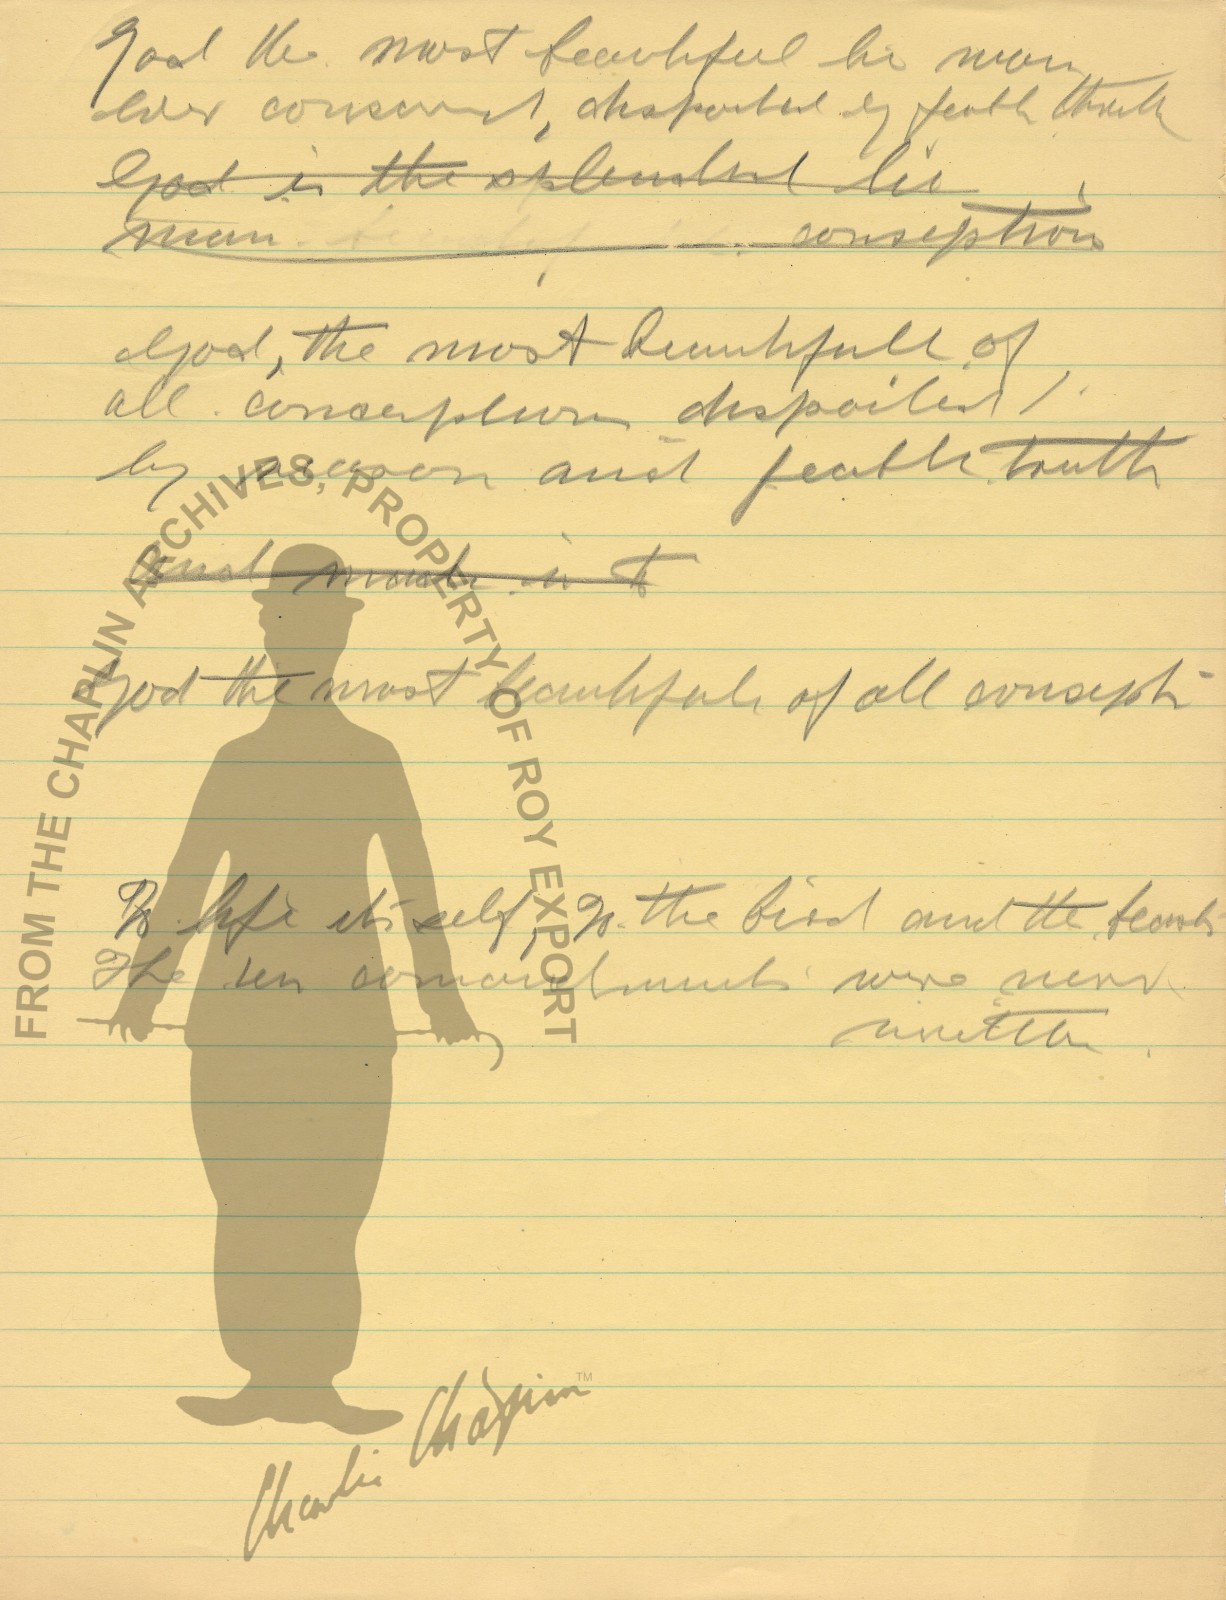 God the most beautiful lie man
ever conseved, dispoiled by feable truth
God is the splendid lie
man conseption
God, the most beautifull of
all conseptions dispoiled
by reason and feable truth
and made it
God the most beautifull of all consepti
To life itsself, To the bird and the beasts
The ten comandments were never
written.
FROM THE CHAPLIN ARCHIVES, PROPERTY OF ROY EXPORT
Charlie Chaplin™